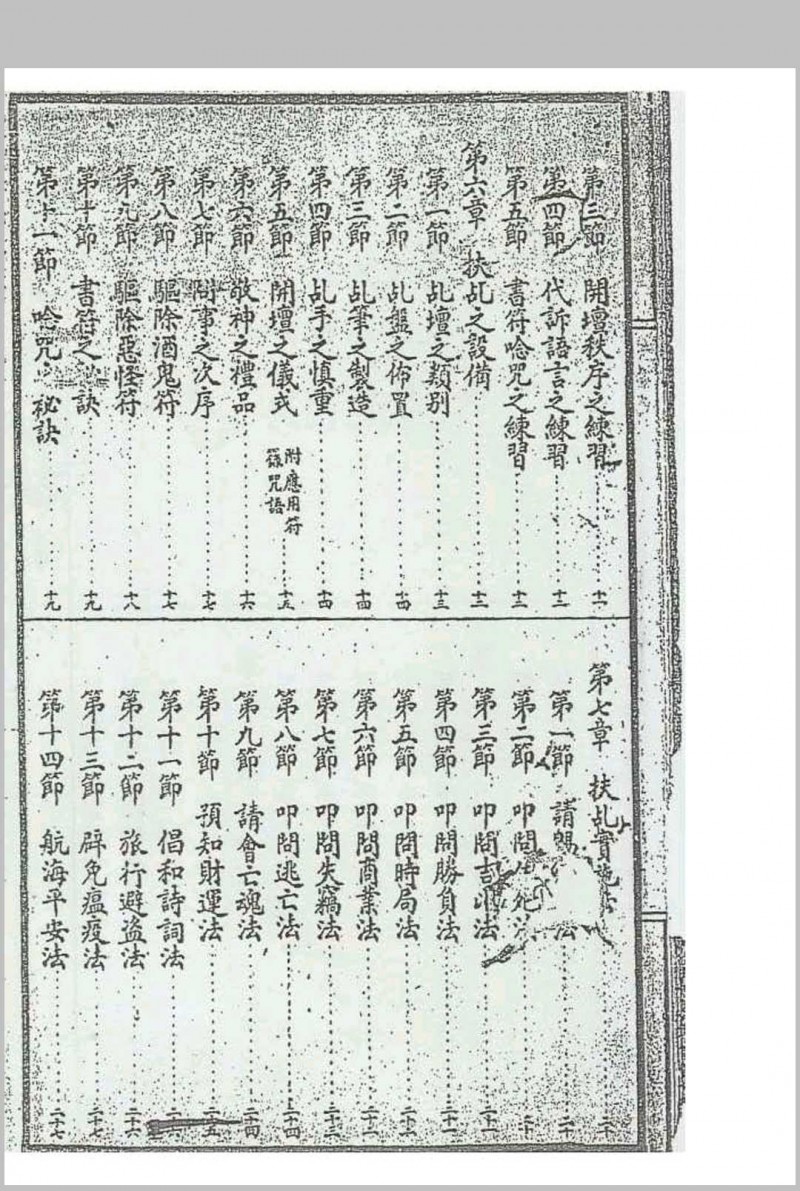 第三節 開壇秩序之練習 十一
第四節 代訴語言之練習 十二
第五節 書符唸咒之練習 十二
第六章 扶乩之設備 十三
第一節 乩壇之類別 十三
第二節 乩盤之佈置 十四
第三節 乩筆之製造 十四
第四節 乩手之慎重 十四
第五節 開壇之儀式 附應用符籙咒語 十五
第六節 敬神之禮品 十六
第七節 問事之次序 十七
第八節 驅除酒鬼符 十七
第九節 驅除惡怪符 十八
第十節 書符之祕訣 十九
第十一節 唸咒之祕訣 十九
第七章 扶乩實施法 二十
第一節 請 法 二十
第二節 叩問生死法
第三節 叩問吉凶法 二十一
第四節 叩問勝負法 二十一
第五節 叩問時局法 二十二
第六節 叩問商業法 二十二
第七節 叩問失竊法 二十三
第八節 叩問逃亡法 二十四
第九節 請會亡魂法 二十四
第十節 預知財運法 二十五
第十一節 倡和詩詞法
第十二節 旅行避盜法 二十六
第十三節 辟免瘟疫法 二十七
第十四節 航海平安法 二十七